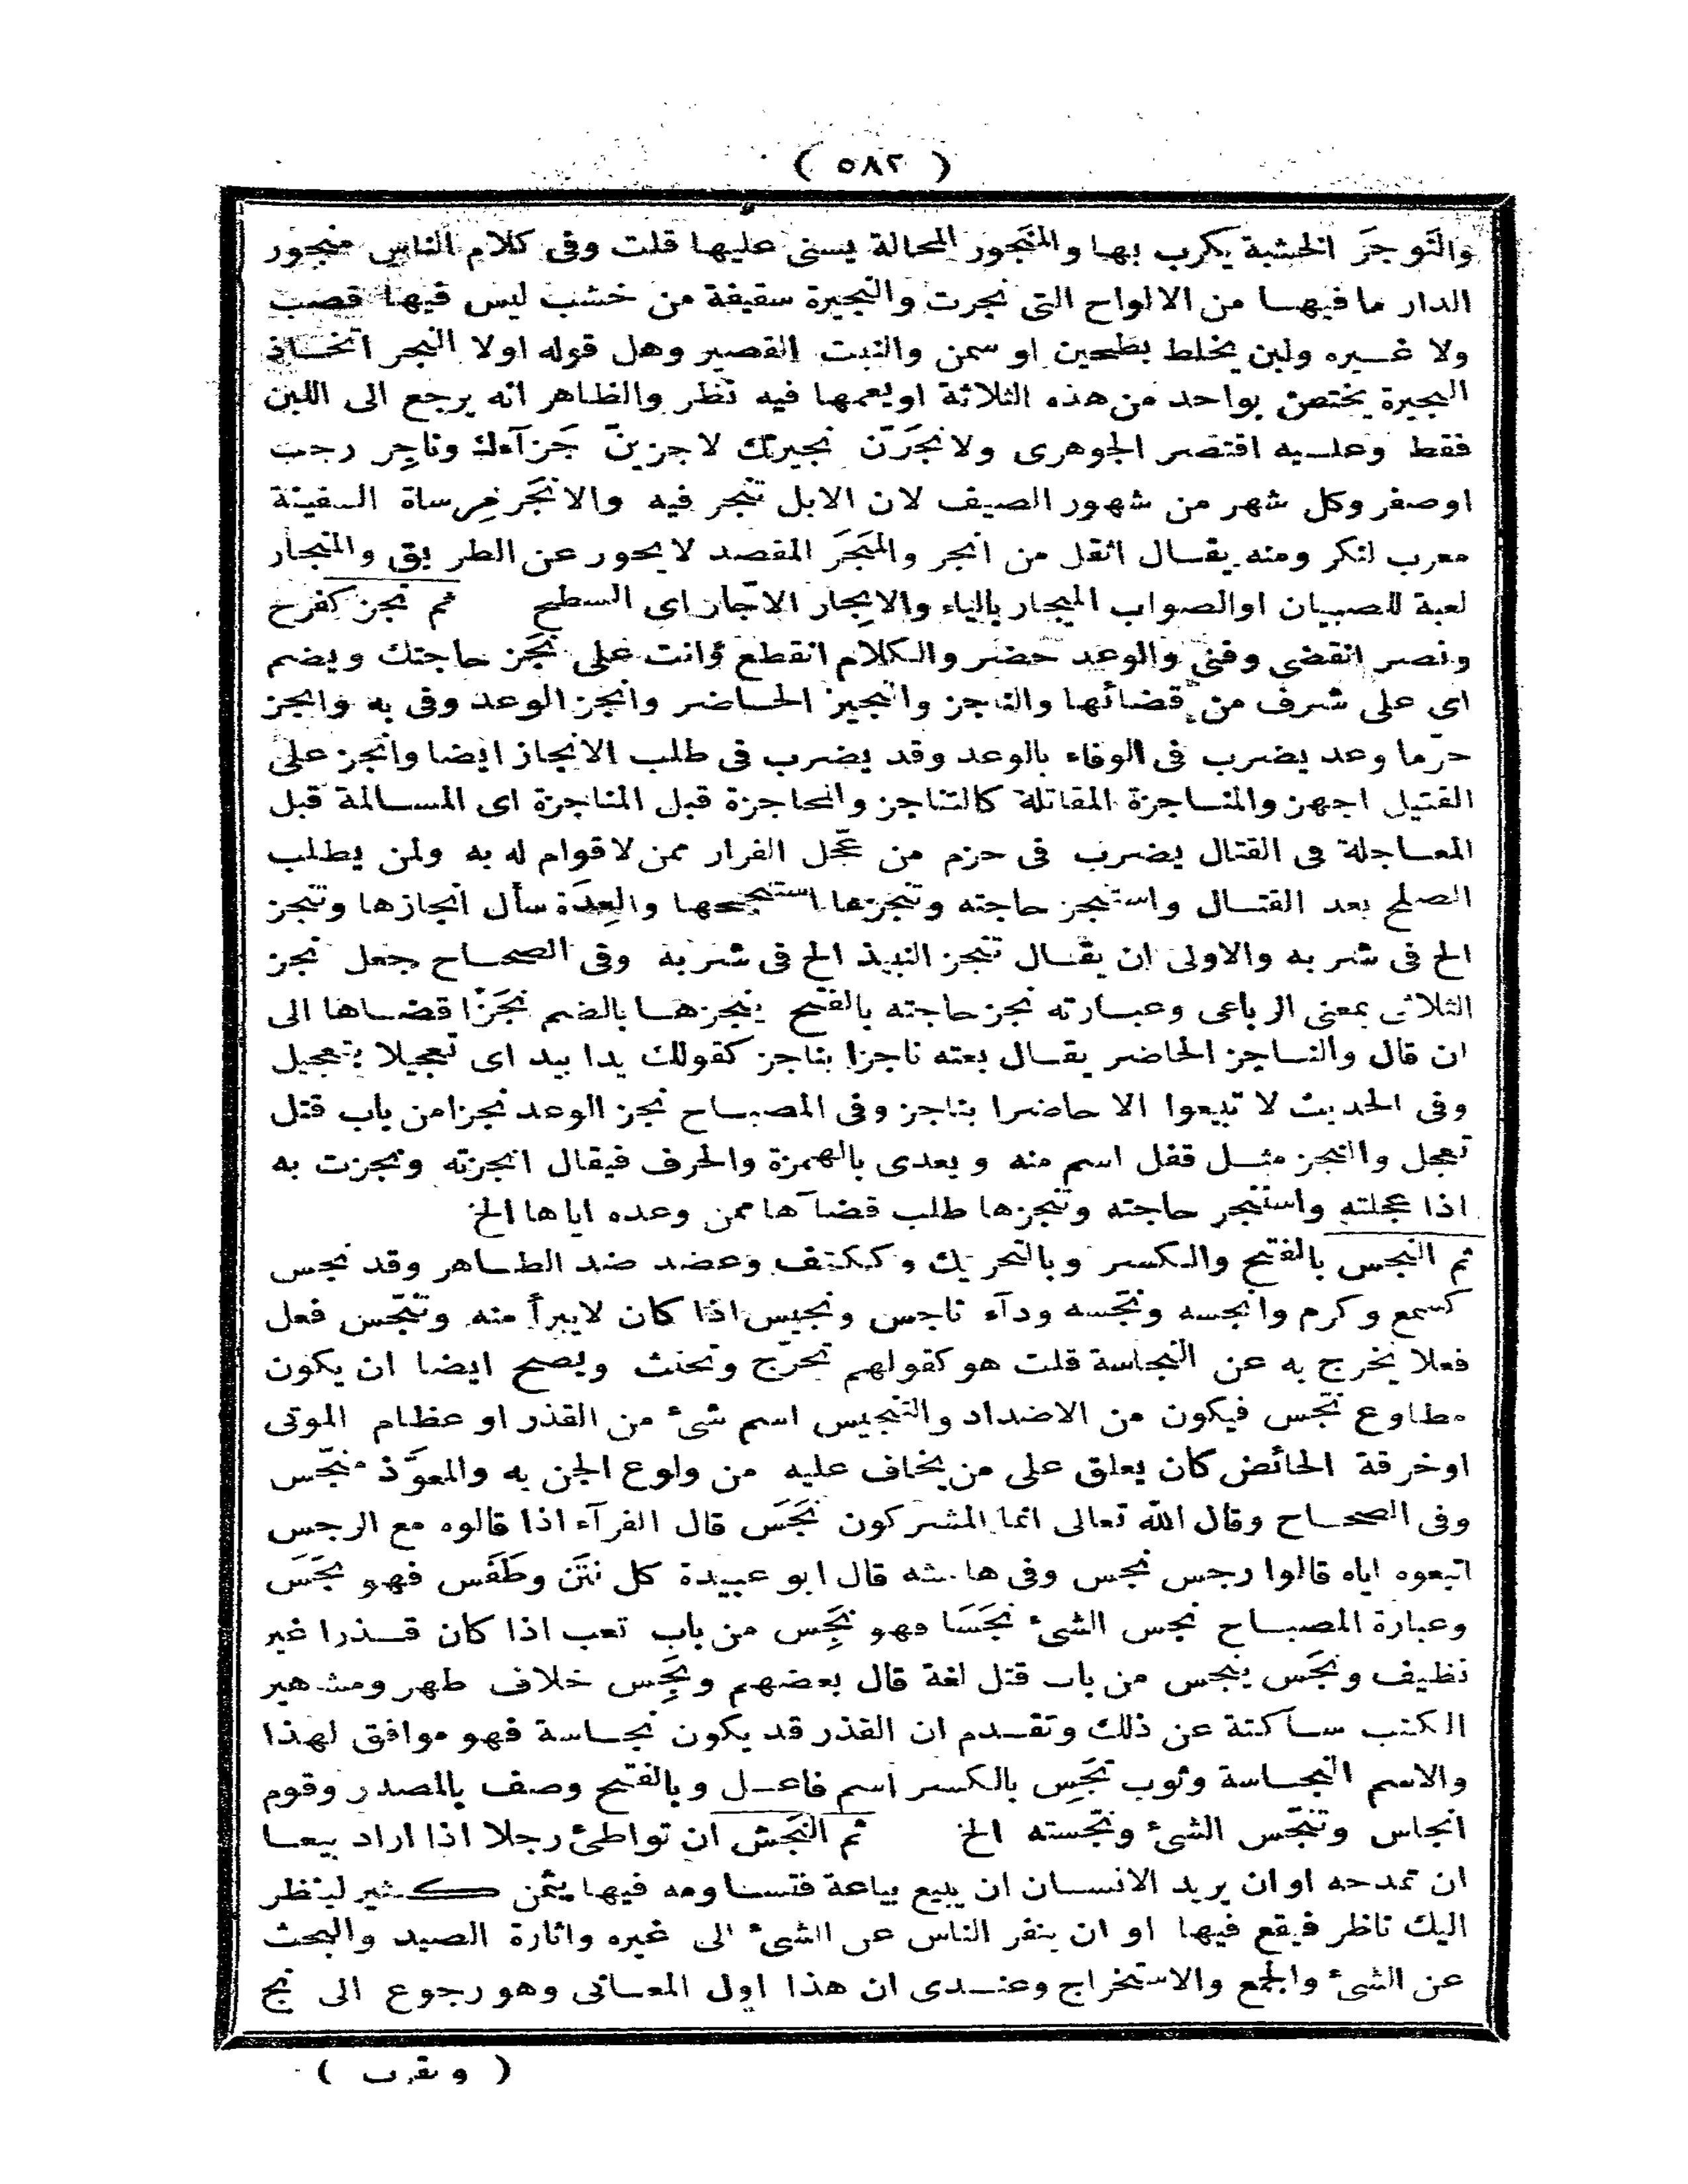 ( ٥٨٢ )
والنَوجَر الخشبة يكرب بها والمَنجور المحالة يسنى عليها قلت وفى كلام الناس منجور
الدار ما فيها من الالواح التى نجرت والنجيرة سقيفة من خشب ليس فيها قصب
ولا غيره ولبن يخلط بطحين او سمن والنبت القصير وهل قوله اولا النجر اتخاذ
النجيرة يختص بواحد من هذه الثلاثة او يعمها فيه نظر والظاهر انه يرجع الى اللبن
فقط وعليه اقتصر الجوهرى ولانجُرَنّ نجيرتك لاجزينّ جَزآءك وناجِر رجب
اوصفر وكل شهر من شهور الصيف لان الابل تنجر فيه والانجَر مِرساة السفينة
معرب لنكر ومنه يقال اثقل من انجر والمَنجَر المقصد لا يحور عن الطريق والمنجار
لعبة للصبيان اوالصواب الميجار بالياء والاِنجار الاجّار اى السطح ثم نجز كفرح
ونصر انقضى وفنى والوعد حضر والكلام انقطع وانت على نَجَز حاجتك ويضم
اى على شرف من قضائها والناجز والنجيز الحاضر وانجز الوعد وفى به وانجز
حرّ ما وعد يضرب فى الوفاء بالوعد وقد يضرب فى طلب الانجاز ايضا وانجز على
القتيل اجهز والمناجزة المقاتلة كالتناجز والمحاجزة قبل المناجزة اى المسالمة قبل
المعاجلة فى القتال يضرب فى حزم من عجّل الفرار ممن لا قوام له به ولمن يطلب
الصلح بعد القتال واستنجز حاجته وتنجزها استنجحها والعِدَة سأل انجازها وتنجز
الخ فى شربه والاولى ان يقال تنجز النبيذ الخ فى شربه وفى الصحاح جعل نجز
الثلاثى بمعنى الرباعى وعبارته نجز حاجته بالفتح ينجزها بالضم نَجْزًا قضاها الى
ان قال والناجز الحاضر يقال بعته ناجزا بناجز كقولك يدا بيد اى تعجيلا بتعجيل
وفى الحديث لا تبيعوا الا حاضرا بناجز وفى المصباح نجز الوعد نجزا من باب قتل
تعجل والنجز مثل قفل اسم منه ويعدى بالهمزة والحرف فيقال انجزته ونجزت به
اذا عجلته واستنجز حاجته وتنجزها طلب قضآءها ممن وعده اياها الخ
ثم النجس بالفتح والكسر وبالتحريك وككتف وعضد ضد الطاهر وقد نجس
كسمع وكرم وانجسه ونجّسه ودآء ناجس ونجيس اذا كان لا يبرأ منه وتنجّس فعل
فعلا يخرج به عن النجاسة قلت هو كقولهم تحرّج وتحنث ويصح ايضا ان يكون
مطاوع نجّس فيكون من الاضداد والتنجيس اسم شىء من القذر او عظام الموتى
اوخرقة الحائض كان يعلق على من يخاف عليه من ولوع الجن به والمعوّذ منجّس
وفى الصحاح وقال الله تعالى انما المشركون نَجَس قال الفرآء اذا قالوه مع الرجس
اتبعوه اياه قالوا رجس نجس وفى هامشه قال ابو عبيدة كل نتَن وطَفَس فهو نجَسَ
وعبارة المصباح نجس الشىء نَجَسَا فهو نَجِس من باب تعب اذا كان قذرا غير
نظيف ونجَس ينجس من باب قتل لغة قال بعضهم ونَجِس خلاف طهر ومشاهير
الكتب ساكتة عن ذلك وتقدم ان القذر قد يكون نجاسة فهو موافق لهذا
والاسم النجاسة وثوب نجَسِ بالكسر اسم فاعل وبالفتح وصف بالمصدر وقوم
انجاس وتنجّس الشىء ونجّسته الخ ثم النَجَش ان تواطئ رجلا اذا اراد بيعا
ان تمدحه او ان يريد الانسان ان يبيع بياعة فتساومه فيها بثمن كثير لينظر
اليك ناظر فيقع فيها او ان ينفر الناس عن الشىء الى غيره واثارة الصيد والبحث
عن الشىء والجمع والاستخراج وعندى ان هذا اول المعانى وهو رجوع الى نج
( وبقرب )